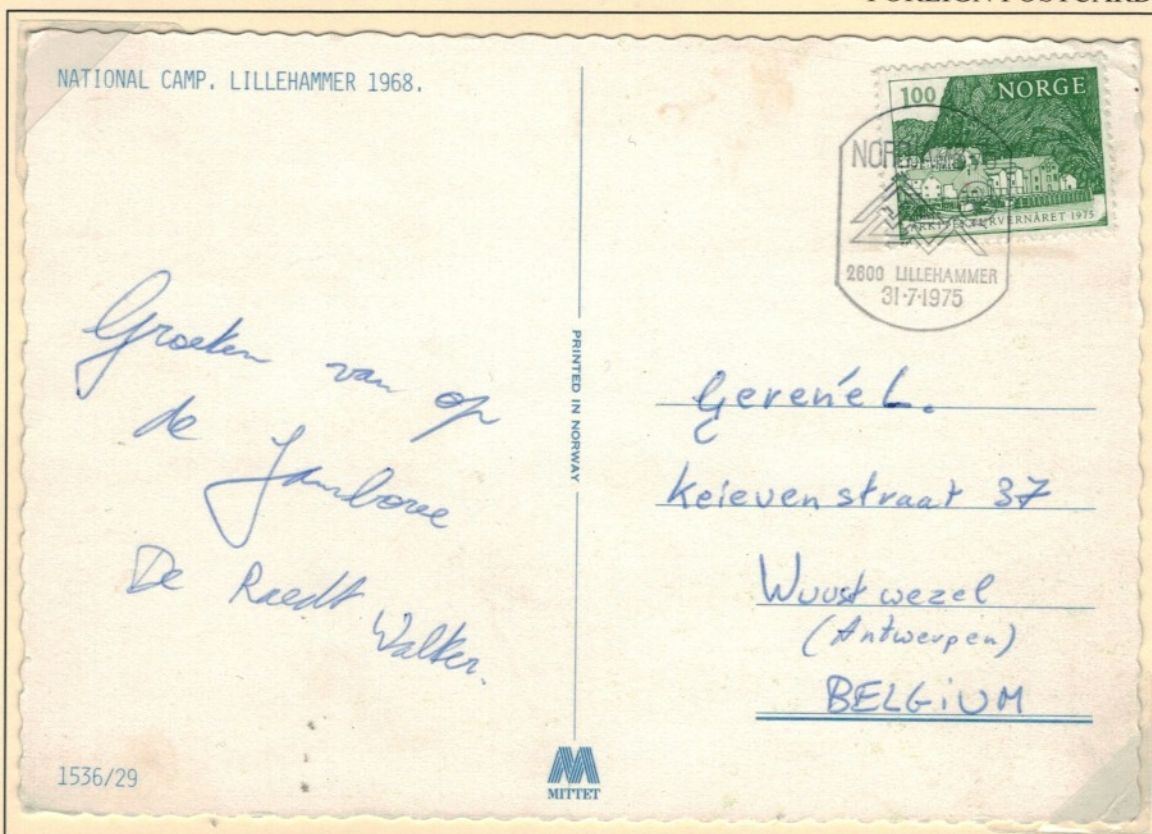 FOREIGN POSTCARD
NATIONAL CAMP. LILLEHAMMER 1968.
100 NORGE
ARKITEKTURVERNÅRET 1975
2600 LILLEHAMMER
31-7-1975
Groeten van op
de Jamboree
De Raedt Walter.
PRINTED IN NORWAY
Keievenstraat 37
Wuustwezel
(Antwerpen)
BELGIUM
1536/29
MITTET